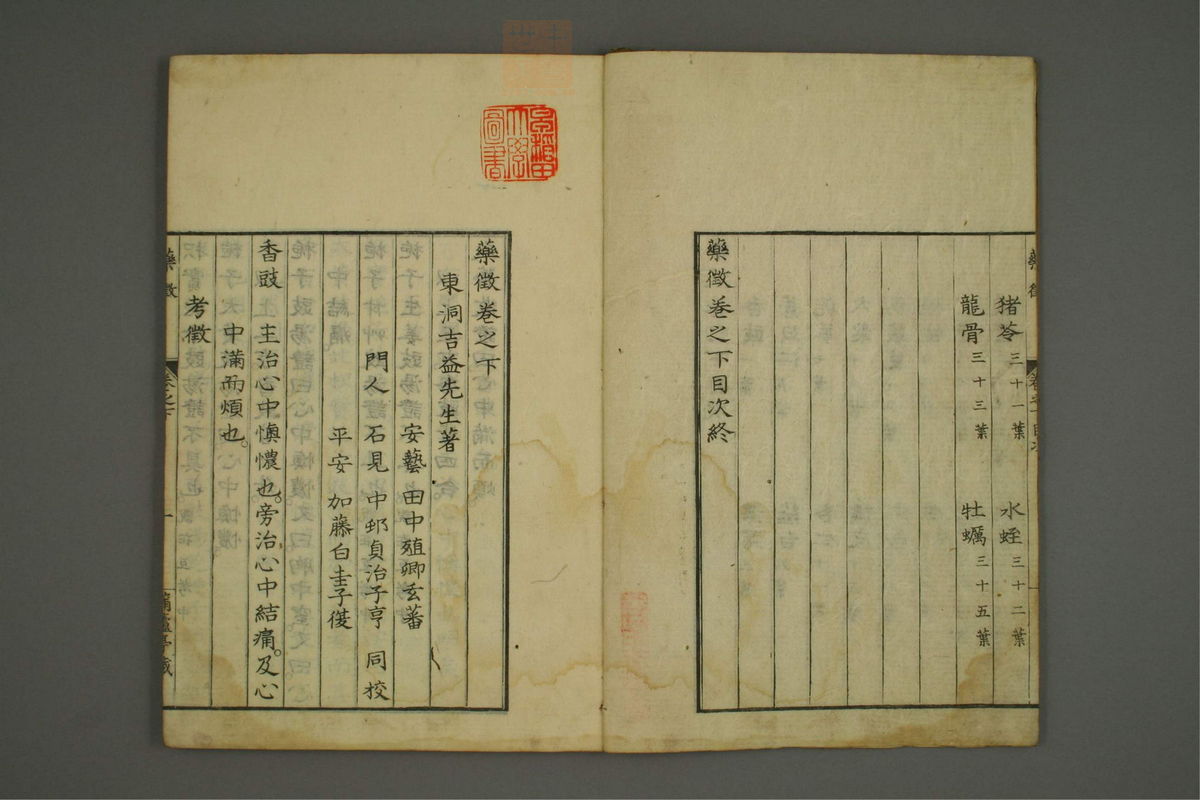 猪苓三十一葉　水蛭三十二葉
龍骨三十三葉　牡蠣三十五葉
藥徴巻之下目次終
藥徴巻之下
東洞吉益先生著
安藝　田中殖卿玄蕃
門人　石見　中邨貞治子亨　同挍
平安　加藤白圭子復
香豉　主治心中懊憹也。旁治心中結痛。及心
中滿而煩也。
考徴